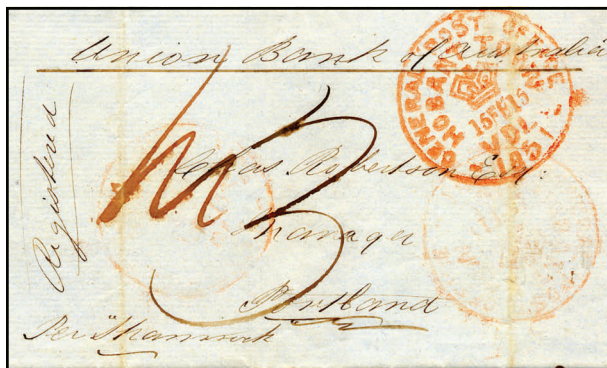 Union Bank of Australia
GENERAL POST OFFICE
HOBART TOWN
15 FE 15
VDL
1851
Registered
Chas Robertson Esq:
Manager
Portland
Per "Shamrock